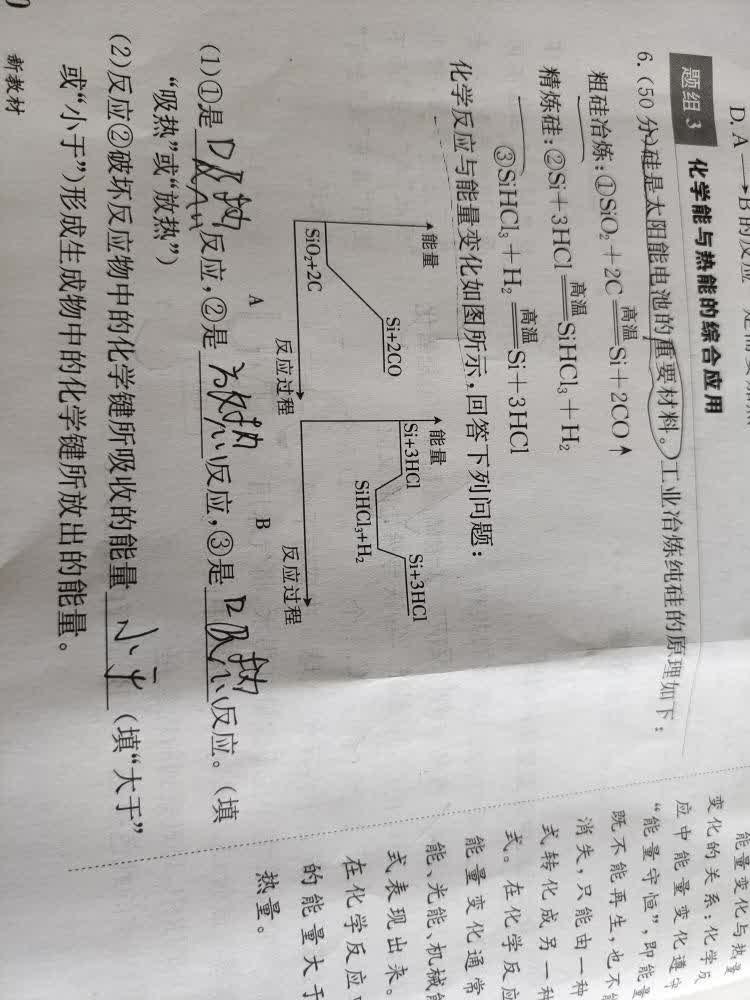 D. A→B的反应
题组3 化学能与热能的综合应用
6. (50分)硅是太阳能电池的重要材料。工业冶炼纯硅的原理如下:
粗硅冶炼:①SiO₂+2C=高温=Si+2CO↑
精炼硅:②Si+3HCl=高温=SiHCl₃+H₂
③SiHCl₃+H₂=高温=Si+3HCl
化学反应与能量变化如图所示,回答下列问题:
能量
Si+2CO
SiO₂+2C
反应过程
A
能量
Si+3HCl
SiHCl₃+H₂
Si+3HCl
反应过程
B
(1)①是吸热反应,②是放热反应,③是吸热反应。(填
“吸热”或“放热”)
(2)反应②破坏反应物中的化学键所吸收的能量小于(填“大于”
或“小于”)形成生成物中的化学键所放出的能量。
新教材
能量变化与热量
变化的关系:化学反
应中能量变化遵守
“能量守恒”,即能量
既不能再生,也不能
消失,只能由一种
式转化成另一种
式。在化学反应
能量变化通常
能、光能、机械能
式表现出来。
在化学反应
的能量大于
热量。